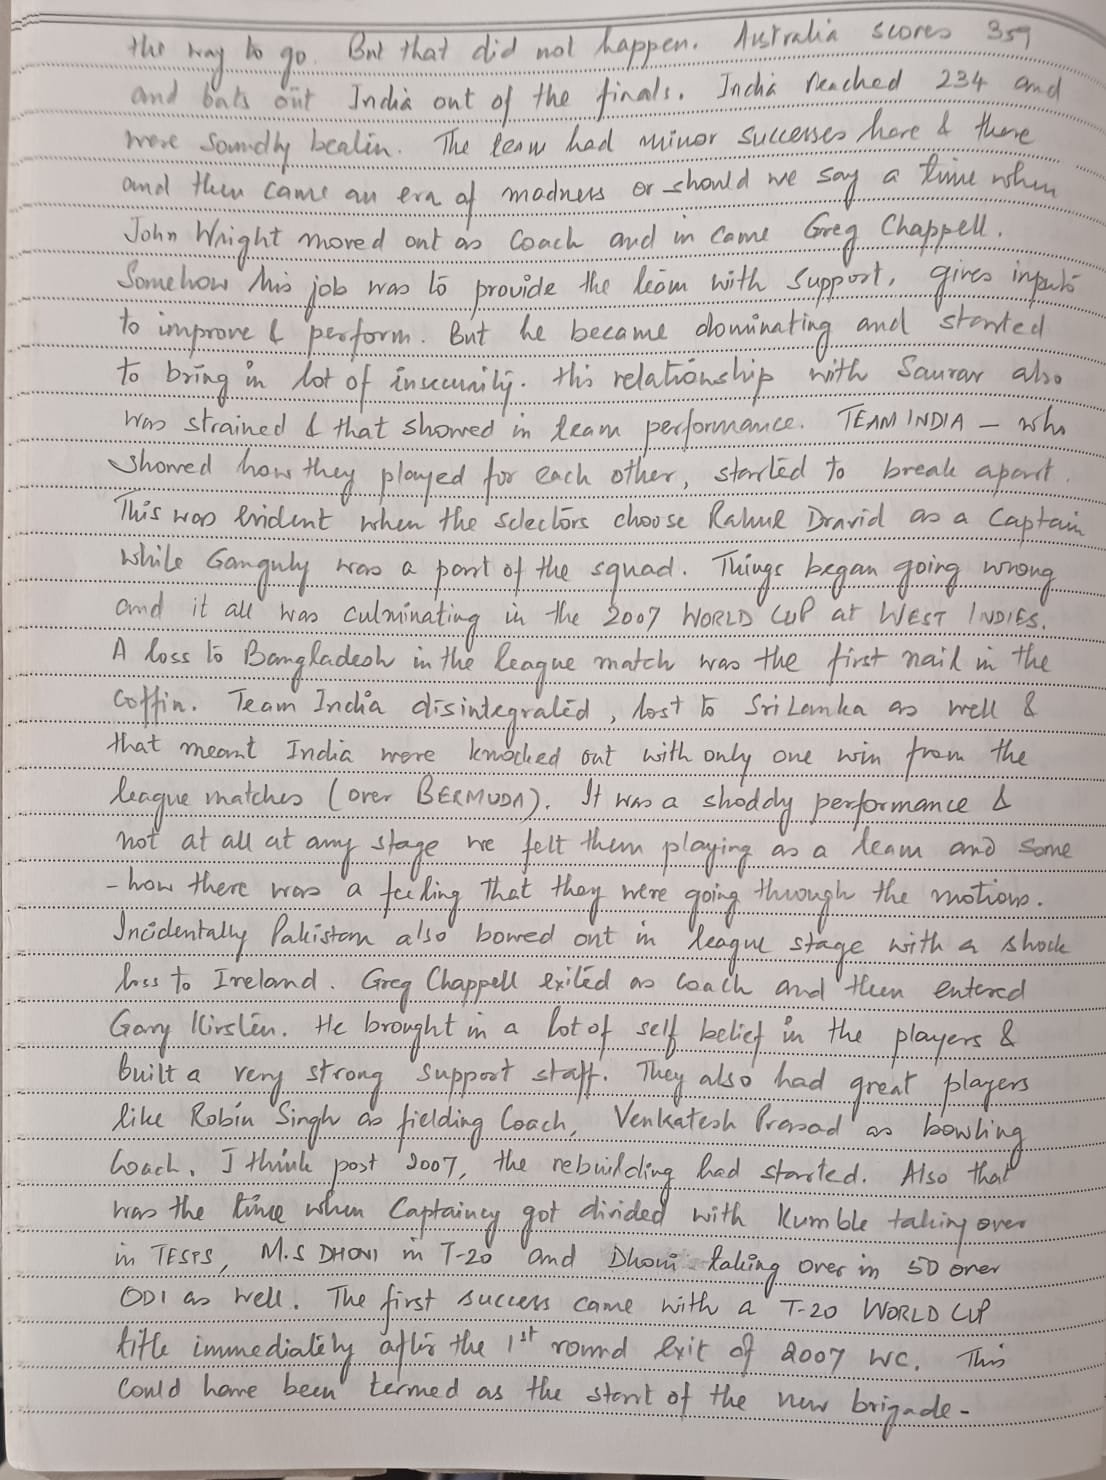 the way to go. But that did not happen. Australia scores 359
and bats out India out of the finals. India reached 234 and
were soundly beaten. The team had minor successes here & there
and then came an era of madness or should we say a time when
John Wright moved out as Coach and in came Greg Chappell.
Somehow his job was to provide the team with support, gives inputs
to improve & perform. But he became dominating and started
to bring in lot of insecurity. His relationship with Saurav also
was strained & that showed in team performance. TEAM INDIA - who
showed how they played for each other, started to break apart.
This was evident when the selectors choose Rahul Dravid as a Captain
while Ganguly was a part of the squad. Things began going wrong
and it all was culminating in the 2007 WORLD CUP at WEST INDIES.
A loss to Bangladesh in the league match was the first nail in the
coffin. Team India disintegrated, lost to Sri Lanka as well &
that meant India were knocked out with only one win from the
league matches (over BERMUDA). It was a shoddy performance &
not at all at any stage we felt them playing as a team and some
-how there was a feeling that they were going through the motions.
Incidentally Pakistan also bowed out in league stage with a shock
loss to Ireland. Greg Chappell exited as coach and then entered
Gary Kirsten. He brought in a lot of self belief in the players &
built a very strong support staff. They also had great players
like Robin Singh as fielding Coach, Venkatesh Prasad as bowling
Coach. I think post 2007, the rebuilding had started. Also that
was the time when Captaincy got divided with Kumble taking over
in TESTS, M.S DHONI in T-20 and Dhoni taking over in 50 over
ODI as well. The first success came with a T-20 WORLD CUP
title immediately after the 1st round exit of 2007 WC. This
could have been termed as the start of the new brigade-